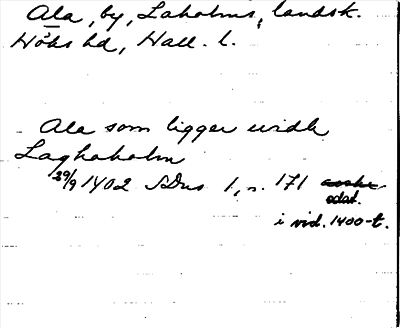 Ala, by, Laholms landsk.
Höks hd, Hall. l.
Ala som ligger widh
Laghaholm
29/9 1402 SDns 1, s. 171
odat.
i vid. 1400-t.